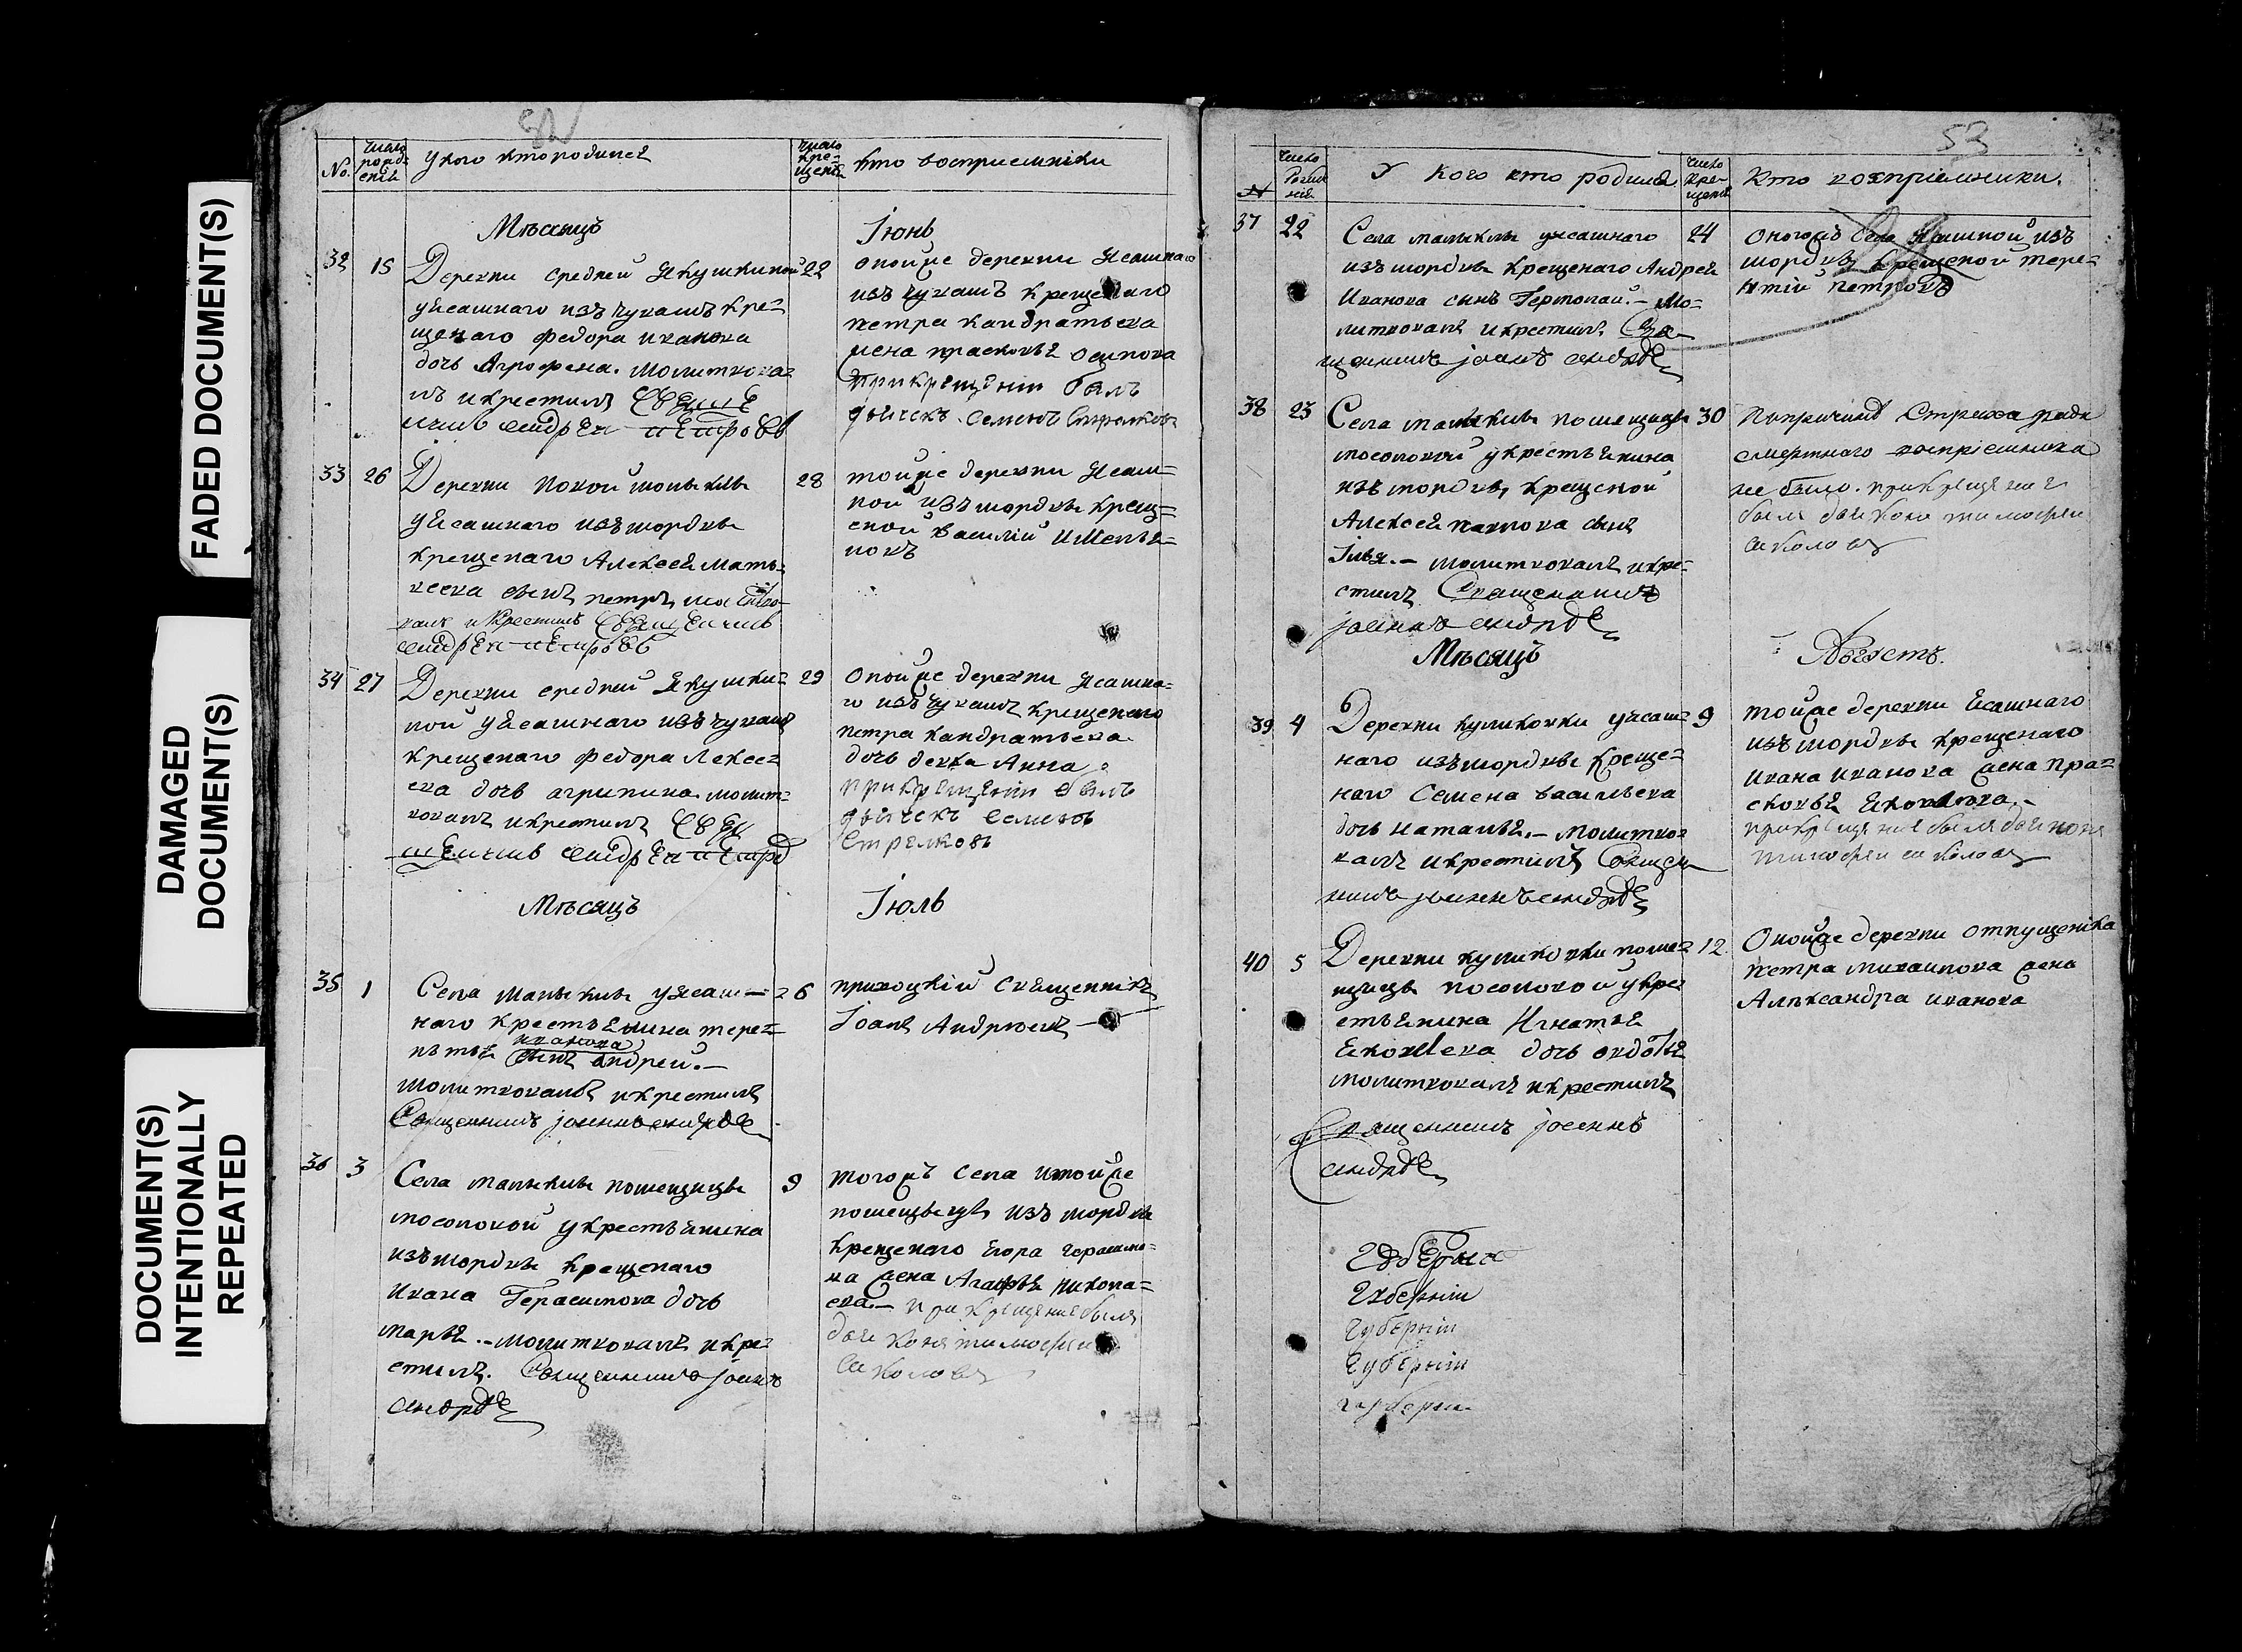 FADED DOCUMENT(S)
DAMAGED
DOCUMENT(S)
DOCUMENT(S)
INTENTIONALLY
REPEATED
52
No.
число
рожд
енія
У кого кто родился
число
кре-
щенія
Кто восприемники
Мѣсяцъ Іюнь
32 15 Деревни средней Якушкиной
уясашнаго изъ чувашъ кре-
щенаго федора иванова
дочь Агрофена. молитвова-
лъ и крестилъ Свяще
никъ андрѣи петровъ
22 оной же деревни Ясашнаго
изъ чувашъ крещенаго
петра кандратьева
жена прасковья осипова
при крещении былъ
дьячекъ Семенъ Стрелковъ
33 26 Деревни новой малыклы
уясашнаго изъ мордвы
крещенаго Алексея мать-
веева сынъ петръ молитво-
валъ и крестилъ Священникъ
андрѣи петровъ
28 той же деревни Ясаш-
ной изъ мордвы крещ-
еной василий
34 27 Деревни средней Якушки-
ной уясашнаго изъ чувашъ
крещенаго федора Алексе-
ева дочь агрипина молит-
вовалъ и крестилъ Свя
щенникъ андрѣи петро
29 Оной же деревни Ясашна-
го изъ чувашъ крещенаго
петра кандратьева
дочь девка Анна
при крещении былъ
дьячекъ Семенъ
Стрелковъ
Мѣсяцъ Іюль
35 1 Села малыклы уясаш-
наго крестьянина тере-
нтья иванова сынъ андрей.-
молитвовалъ и крестилъ
Священникъ іоаннъ андрѣе
26 приходскій Священникъ
Іоанъ Андреевъ
36 3 Села малыклы помещицы
мосоловой укрестьянина
изъ мордвы крещенаго
ивана Герасимова дочь
марья.- молитвовалъ и кре-
стилъ. Священникъ іоаннъ
андрѣе
9 того жъ села и той же
помещицы изъ мордвы
крещенаго Егора герасимо-
ва жена Агафья никола-
ева.- при крещение былъ
дьяконъ тимофеи
Саколовъ
53
N
число
Рожде
ния
У кого кто родился
число
кре-
щения
Кто воспріемники.
37 22 Села малыклы уясашнаго
изъ мордвы крещенаго Андрея
Иванова сынъ - Мо-
литвовалъ и крестилъ Свя-
щенникъ іоаннъ андрѣе
24 оногожъ Села Ясашной изъ
мордвы крещеной тере-
нтій петровъ
38 23 Села малыклы помещицы
мосоловой укрестьянина
изъ мордвы крещеной
Алексея павлова сынъ
Ілья.- молитвовалъ и кре-
стилъ Священникъ
іоаннъ андрѣе
30 По причинѣ Страха ради
смертнаго воспріемника
не было. при крещение
былъ дьяконъ тимофеи
Саколовъ
Мѣсяцъ Августъ.
39 4 Деревни куликовки уясаш-
наго изъ мордвы креще-
наго Семена васильева
дочь наталья.- молитво-
валъ и крестилъ Священ
никъ іоаннъ андрѣе
9 той же деревни Ясашнаго
изъ мордвы крещенаго
ивана иванова жена пра-
сковья Яковлева.-
при крещение былъ дьяконъ
тимофеи саколовъ
40 5 Деревни куликовки поме-
щицы мосоловой укре-
стьянина Игнатья
Яковлева дочь авдотья
молитвовалъ и крестилъ
Священникъ іоаннъ
андрѣе
12 Оной же деревни отпущеника
петра михаилова жена
Александра иванова
Губерния
Губерніи
Губерніи
Губерніи
губерни